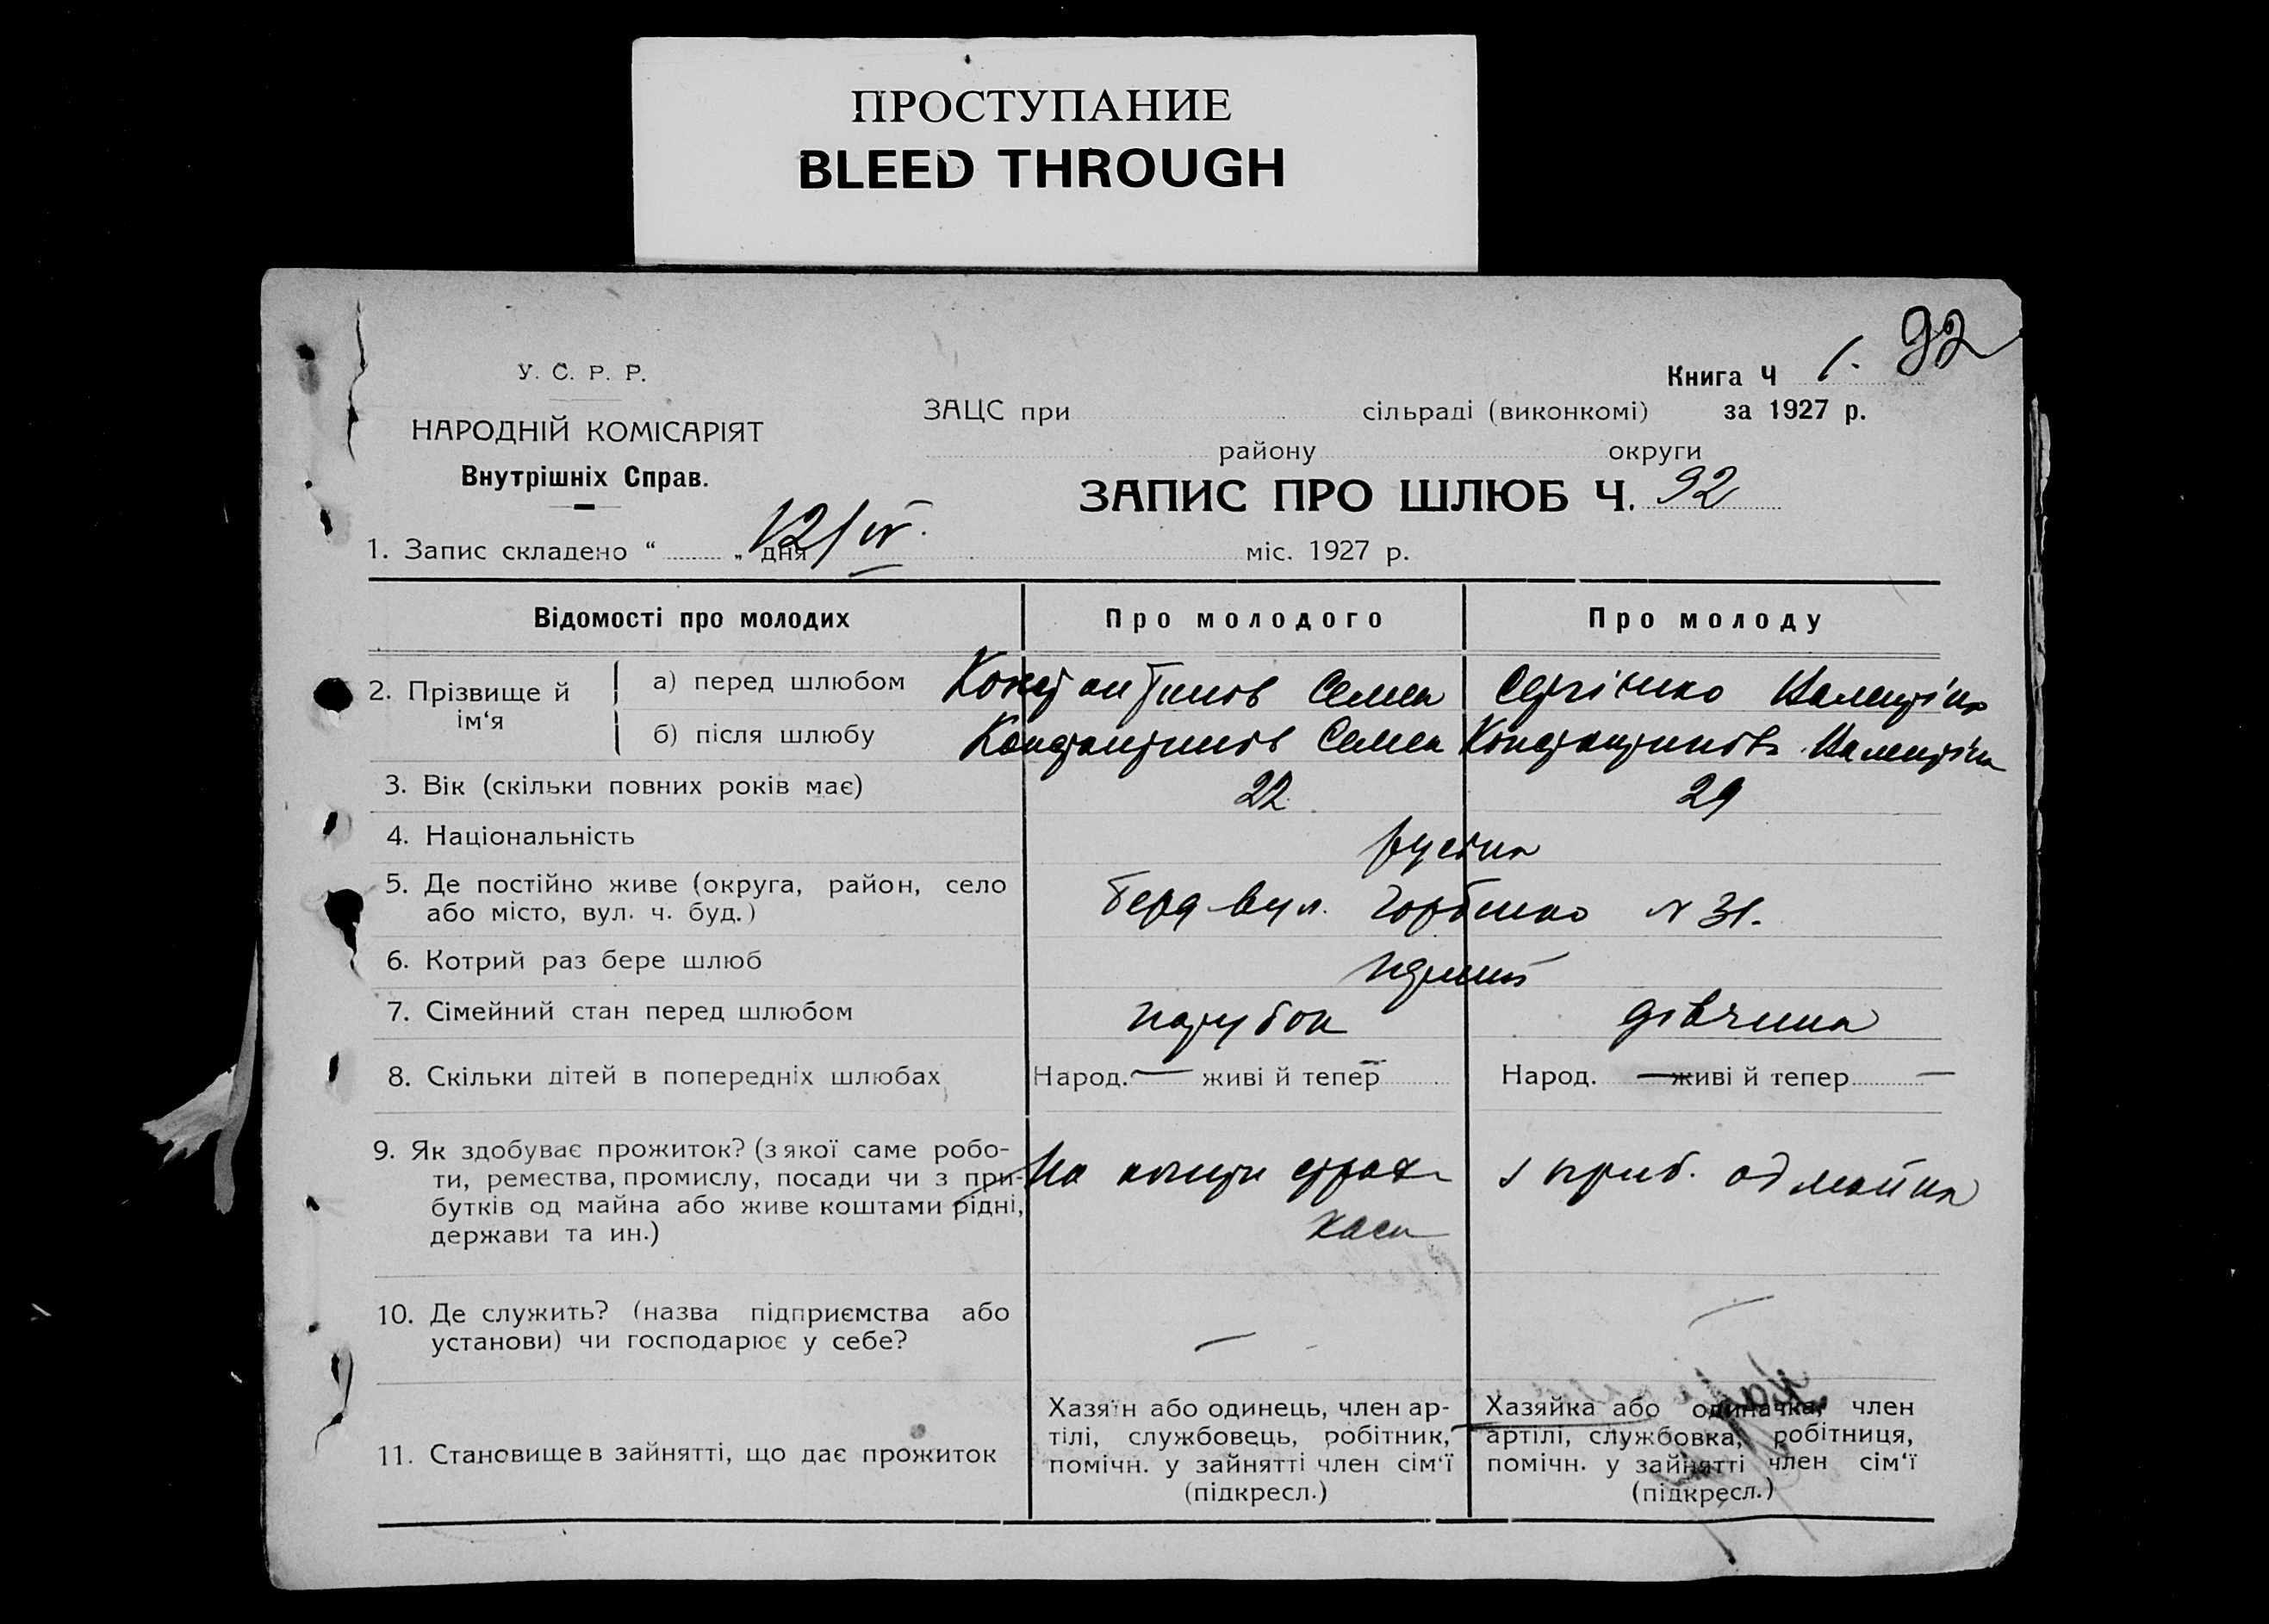 ПРОСТУПАНИЕ
BLEED THROUGH
92
У. С. Р. Р.
Книга Ч 1.
НАРОДНІЙ КОМІСАРІЯТ
Внутрішніх Справ.
ЗАЦС при сільраді (виконкомі) за 1927 р.
району округи
ЗАПИС ПРО ШЛЮБ Ч. 92
1. Запис складено “ „ дня 12/IV. міс. 1927 р.
Відомості про молодих Про молодого Про молоду
2. Прізвище й ім‘я
а) перед шлюбом Константинов Семен Сергієнко Валентіна
б) після шлюбу Константинов Семен Константинова Валентіна
3. Вік (скільки повних років має) 22 29
4. Національність
5. Де постійно живе (округа, район, село
або місто, вул. ч. буд.) вул. Горбенко N 31.
6. Котрий раз бере шлюб
7. Сімейний стан перед шлюбом парубок дівчина
8. Скільки дітей в попередніх шлюбах Народ. — живі й тепер — Народ. — живі й тепер —
9. Як здобуває прожиток? (з якої саме робо-
ти, ремества, промислу, посади чи з при-
бутків од майна або живе коштами рідні,
держави та ин.)
На кошти страх
каси
з приб. од майна
10. Де служить? (назва підприємства або
установи) чи господарює у себе? — —
11. Становище в зайнятті, що дає прожиток
Хазяїн або одинець, член ар-
тілі, службовець, робітник,
помічн. у зайнятті член сім‘ї
(підкресл.)
Хазяйка або одиначка, член
артілі, службовка, робітниця,
помічн. у зайнятті член сім‘ї
(підкресл.)